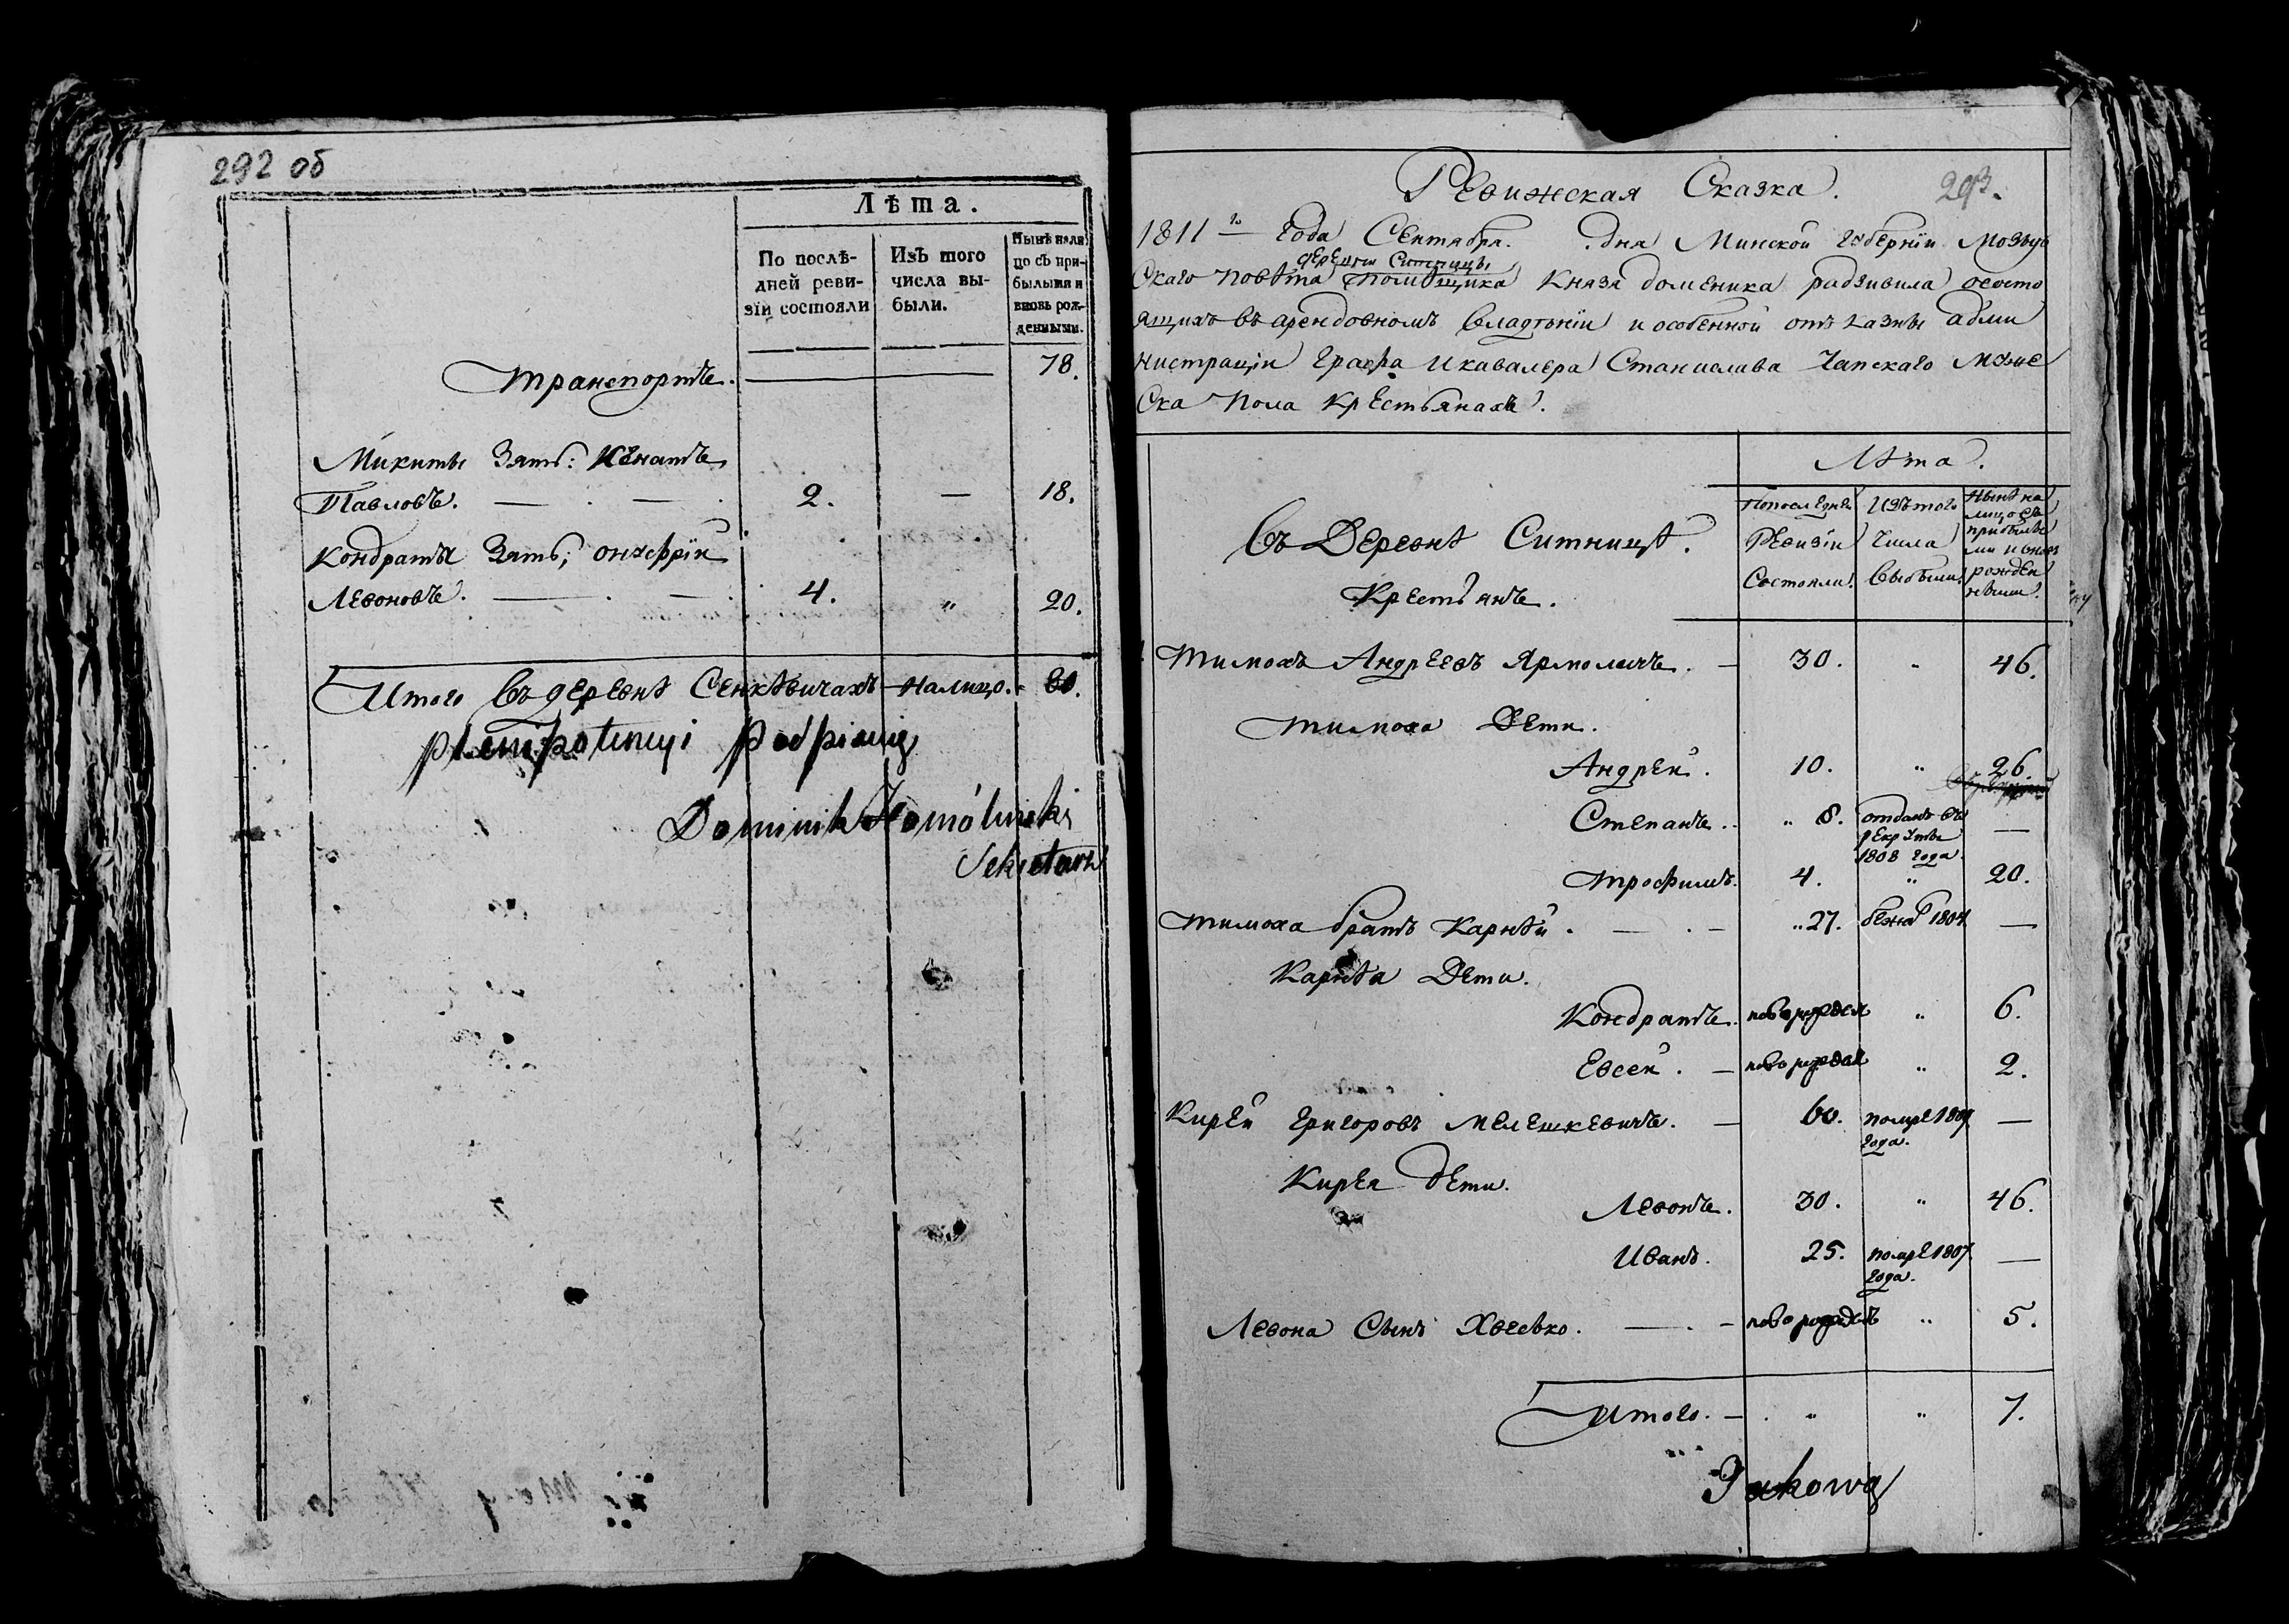 292 об
Лѣта.
По послѣ-
дней реви-
зїи состояли
Изъ того
числа вы-
были.
Нынѣ нали
цо съ при-
былыми и
вновь рож-
денными.
транспортъ. 78.
Микиты Зять: Игнатъ
Павловъ. — — 2. — 18.
Кондрата Зять; онуфрїй
Левоновъ. — — 4. „ 20.
Итого въ деревнѣ Сенкѣвичахъ налицо. 80.
plenipotencyi podpisuię
Dominik
Sekretarz
Ревижская Сказка. 293.
1811го Года Сентября. дня Минской Губернїи Мозыр
деревни Ситницы
Скаго повѣта помѣщика Князя доменика радзивила ососто
ящихъ въ арендовномъ владѣнїи и особенной отъ казны адми
нистрацїи Графа и кавалера Станислава Чапскаго Муже
Ска пола крестьянахъ.
Въ Деревнѣ Ситницѣ.
Крестьянъ.
Лѣта.
Попоследней
Ревизїи
Состояли.
Изътого
Числа
выбыли.
Нынѣ на
лицо съ
прибылы
ми и вновь
рожден
ными.
Тимохъ Андреевъ Ярмоличъ. — 30. „ 46.
Тимоха Дети.
Андрей. 10. „ 26.
Степанъ. „ 8. отданъ въ —
рекруты
1808 года.
Трофимъ. 4. „ 20.
Тимоха братъ Карнѣй. — — „ 27. бежалъ 1807 —
Карнѣя Дети.
Кондратъ. новорожден „ 6.
Евсей. — новорожден „ 2.
Кирей Григоровъ Мелешкевичъ. — 60. помре 1809 —
года.
Кирея дети.
Левонъ. 30. „ 46.
Иванъ. 25. помре 1807 —
года.
Левона Сынъ Хвеско. — — новорожденъ „ 5.
Итого. — „ „ 7.